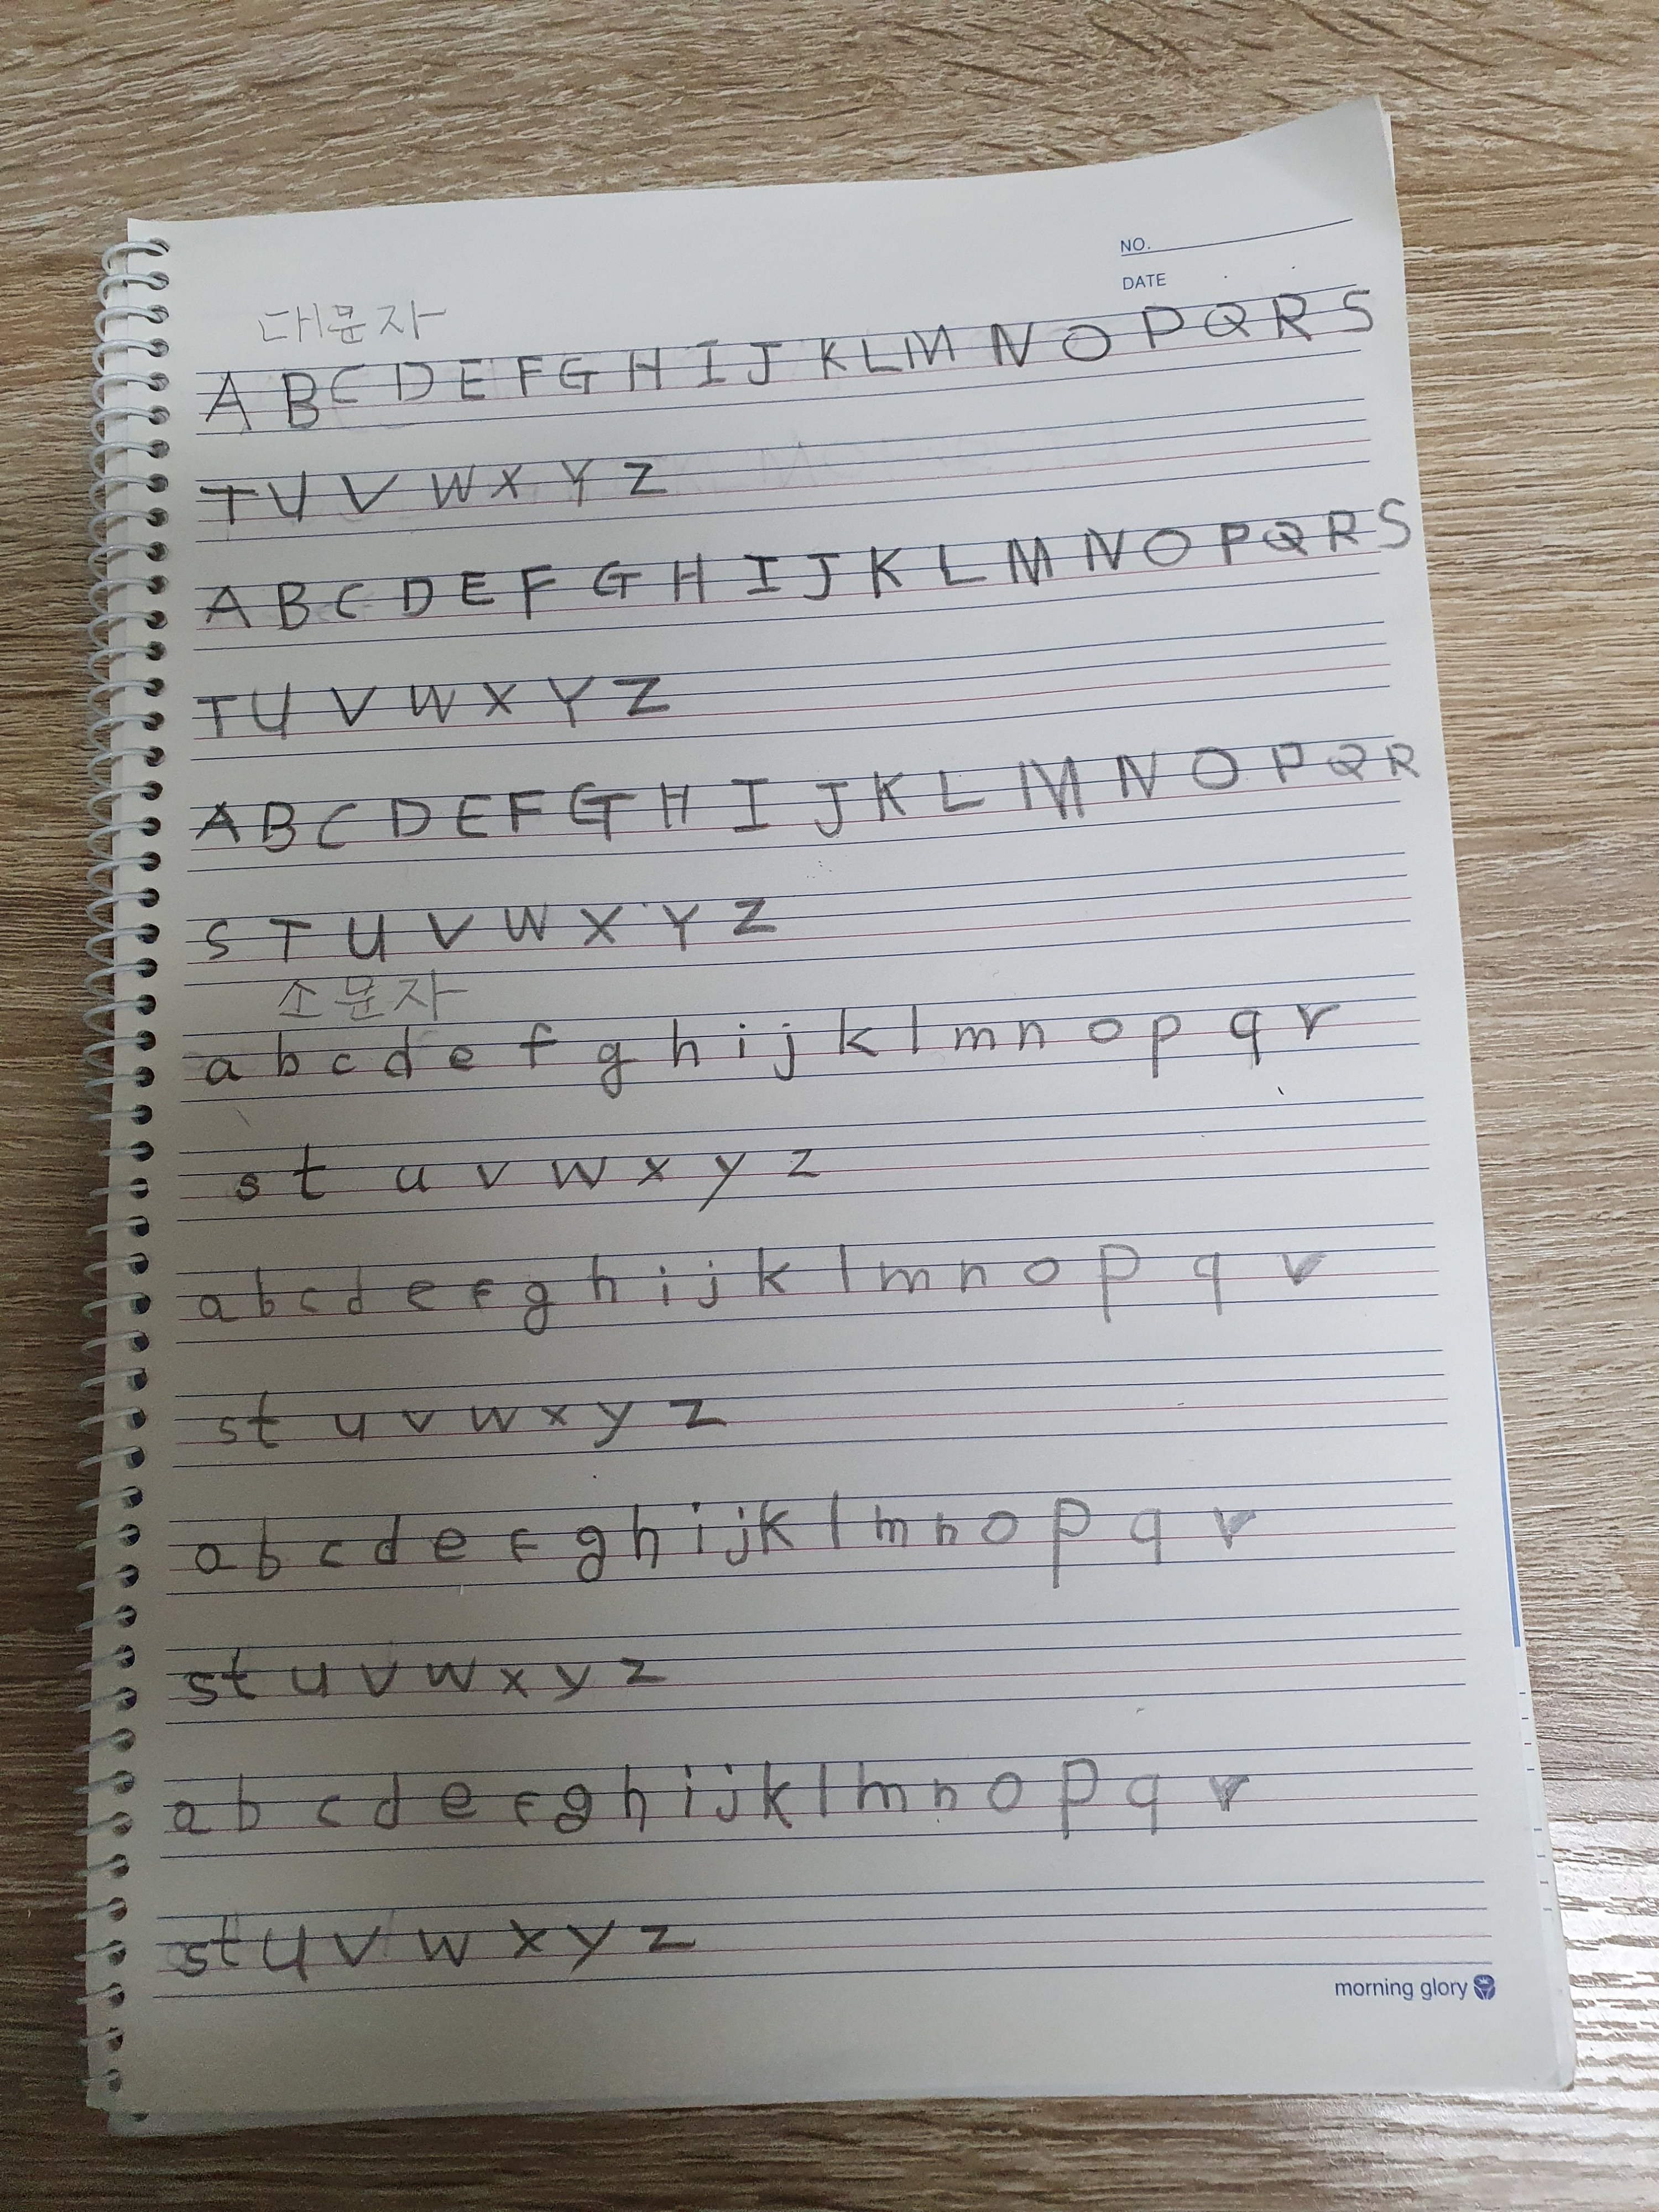 NO.
DATE
대문자
A B C D E F G H I J K L M N O P Q R S
T U V W X Y Z
A B C D E F G H I J K L M N O P Q R S
T U V W X Y Z
A B C D E F G H I J K L M N O P Q R
S T U V W X Y Z
소문자
a b c d e f g h i j k l m n o p q r
s t u v w x y z
a b c d e f g h i j k l m n o p q r
s t u v w x y z
a b c d e f g h i j k l m n o p q r
s t u v w x y z
a b c d e f g h i j k l m n o p q r
s t u v w x y z
morning glory